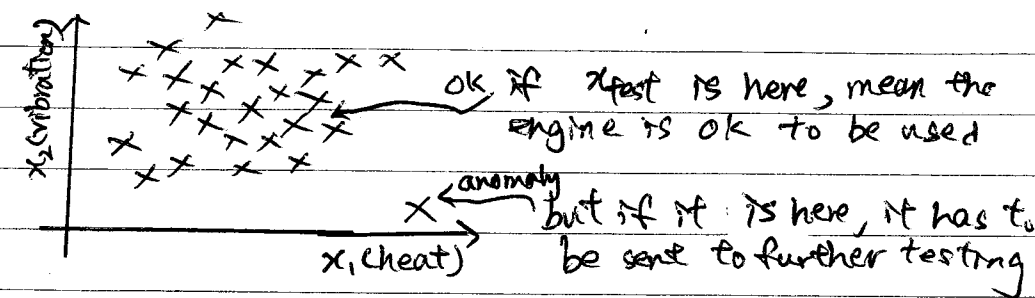 x₂ (vibration)
ok if xtest is here, mean the
engine is ok to be used
anomaly
but if it is here, it has to
be sent to further testing
x₁ (heat)